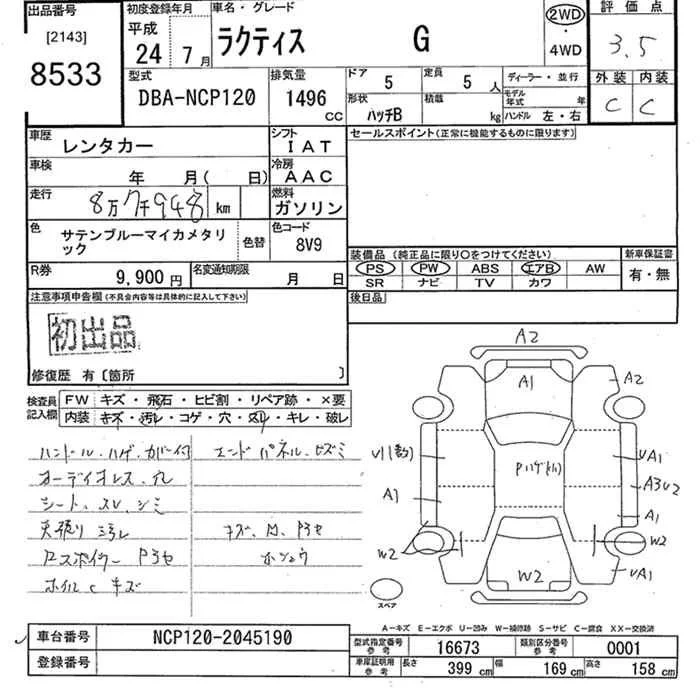 出品番号 初度登録年月 車名・グレード 2WD 評価点
[2143] 平成 ラクティス G ・ 3.5
8533 24年7月 4WD
外装 内装
型式 排気量 ドア 定員 ディーラー・並行
DBA-NCP120 1496cc 5 5人 モデル年式 年 C C
形状 積載
ハッチB kg ハンドル 左・右
車歴 レンタカー シフト IAT セールスポイント(正常に機能するものに限ります)
車検 年 月( 日) 冷房 AAC
走行 8万7千948 km 燃料 ガソリン
色 サテンブルーマイカメタリック 色替 色コード 8V9
装備品(純正品に限り○をつけてください) 新車保証書
R券 9,900円 名変通知期限 月 日 PS PW ABS エアB AW 有・無
SR ナビ TV カワ
注意事項申告欄(不具合内容等は具体的に記入して下さい) 後日品
初出品
修復歴 有〔箇所 〕
検査員記入欄 FW キズ・飛石・ヒビ割・リペア跡・×要
内装 キズ・汚レ・コゲ・穴・スレ・キレ・破レ
ハンドル.ハゲ.カバー付 エンドパネル.ヒズミ
オーディオレス.穴
シート.スレ.シミ
天張り ヨゴレ
ロスポイラー Pラセ
ホイルc キズ
A2
A1 A2
A1
A3U2
A1
W2 W2
W2 UA1
スペア
A-キズ E-エクボ U-凹み W-補修跡 S-サビ C-腐食 XX-交換済
車台番号 NCP120-2045190 型式指定番号参考 16673 類別区分番号参考 0001
登録番号 車庫証明用参考 長さ 399cm 幅 169cm 高さ 158cm